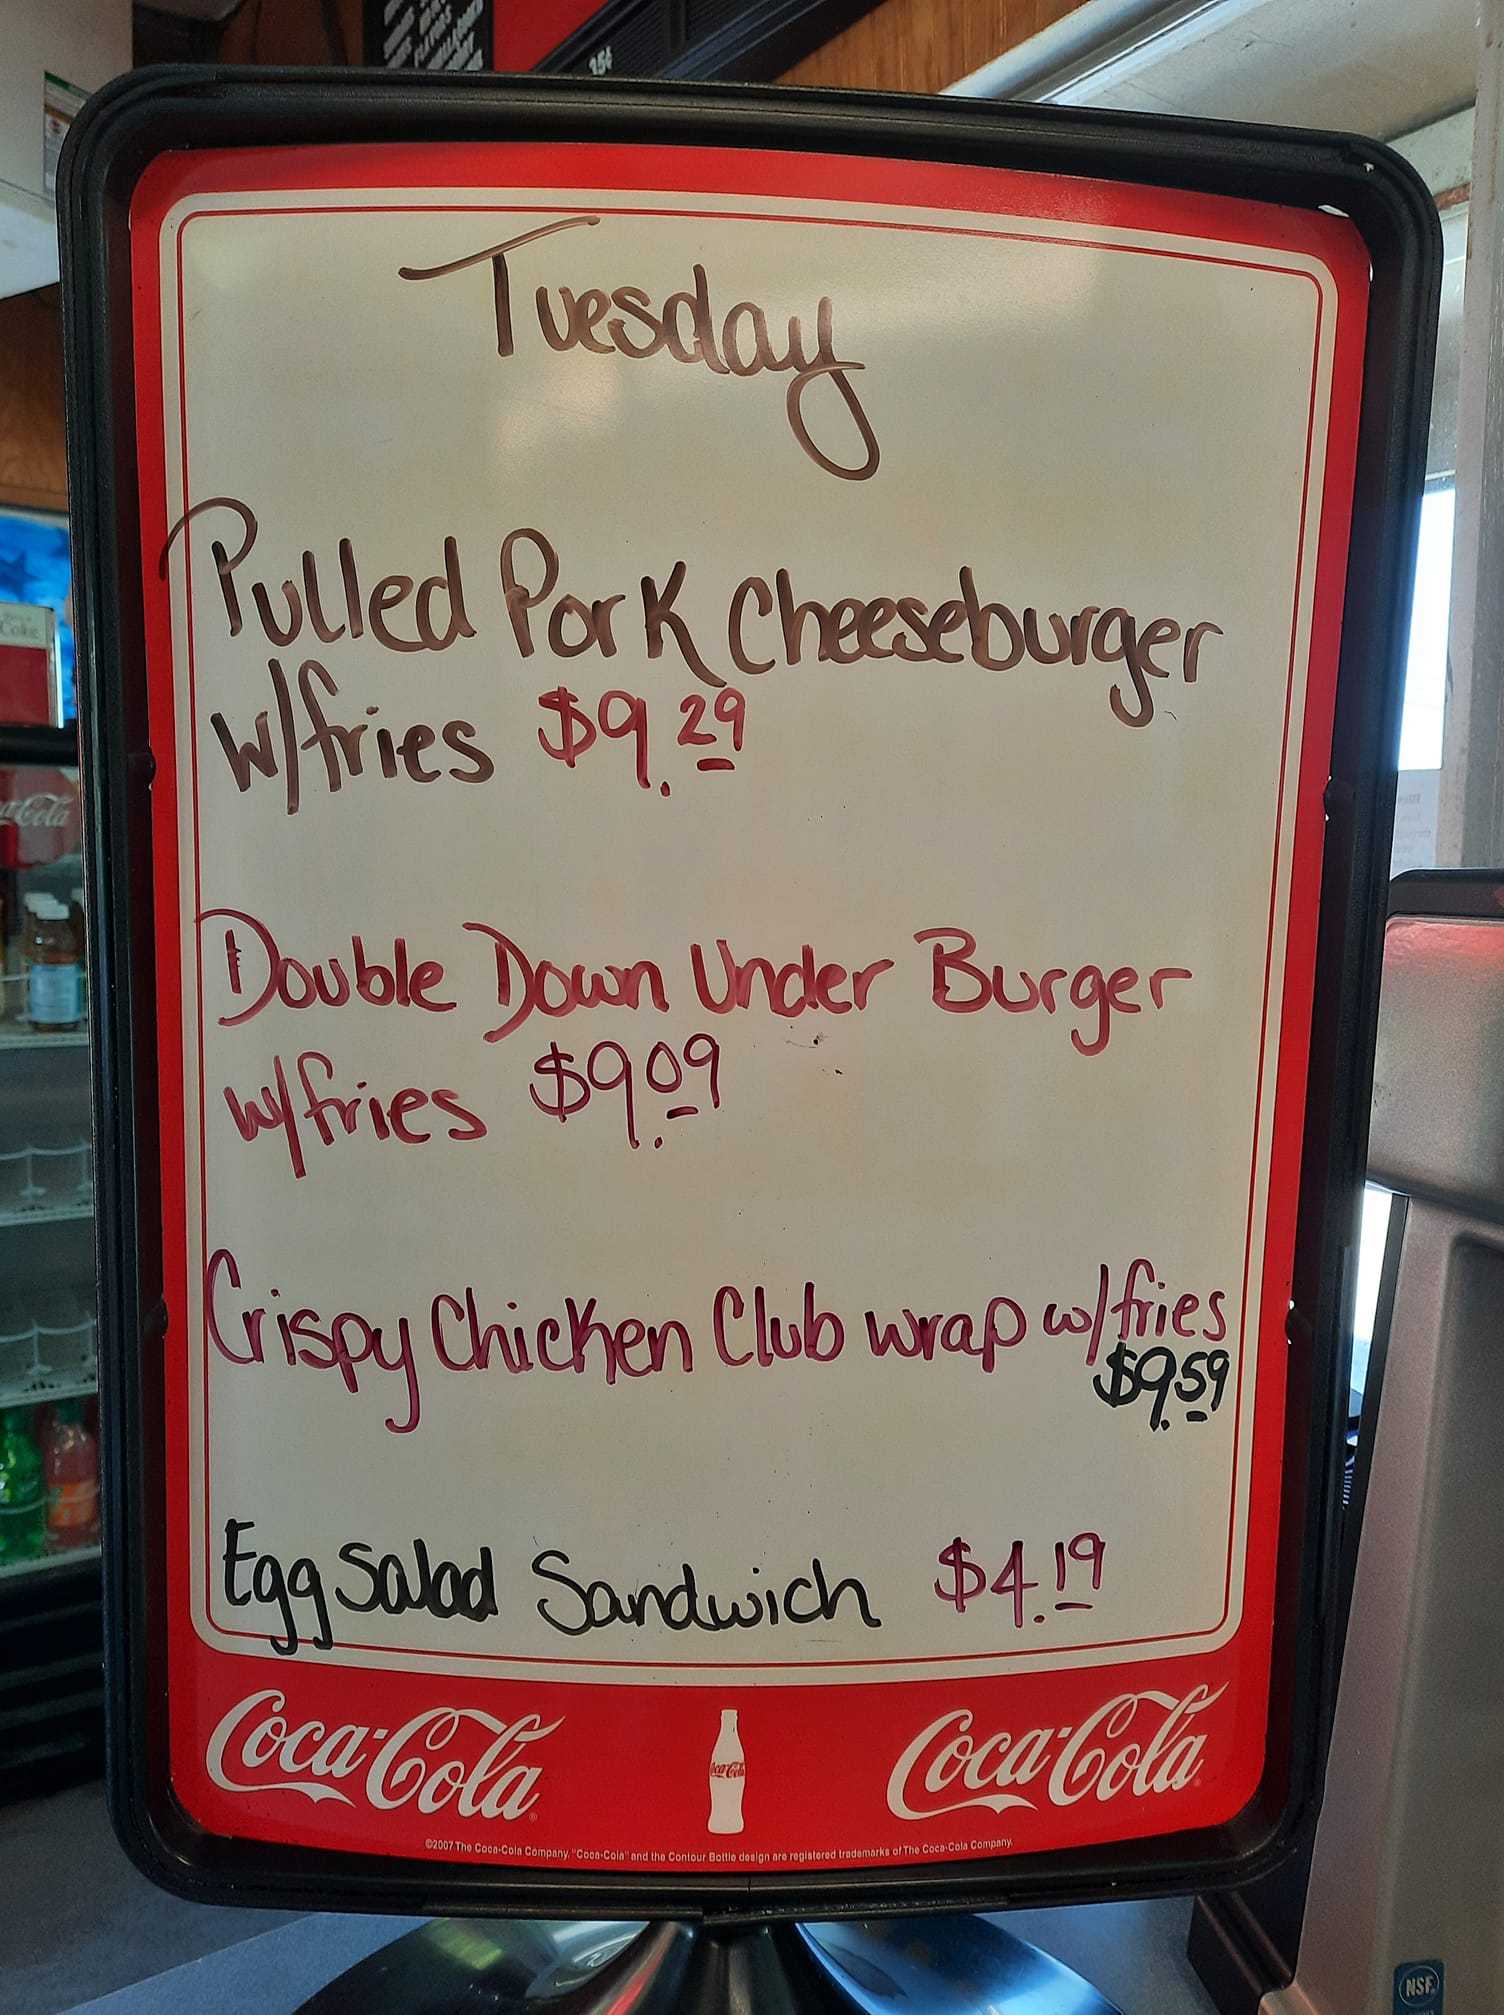 35¢
Tuesday
Pulled Pork Cheeseburger
w/fries $9.29
Double Down Under Burger
w/fries $9.09
Crispy Chicken Club wrap w/fries
$9.59
Egg Salad Sandwich $4.19
Coca-Cola Coca-Cola Coca-Cola
©2007 The Coca-Cola Company. "Coca-Cola" and the Contour Bottle design are registered trademarks of The Coca-Cola Company.
Coke
Coca-Cola
NSF